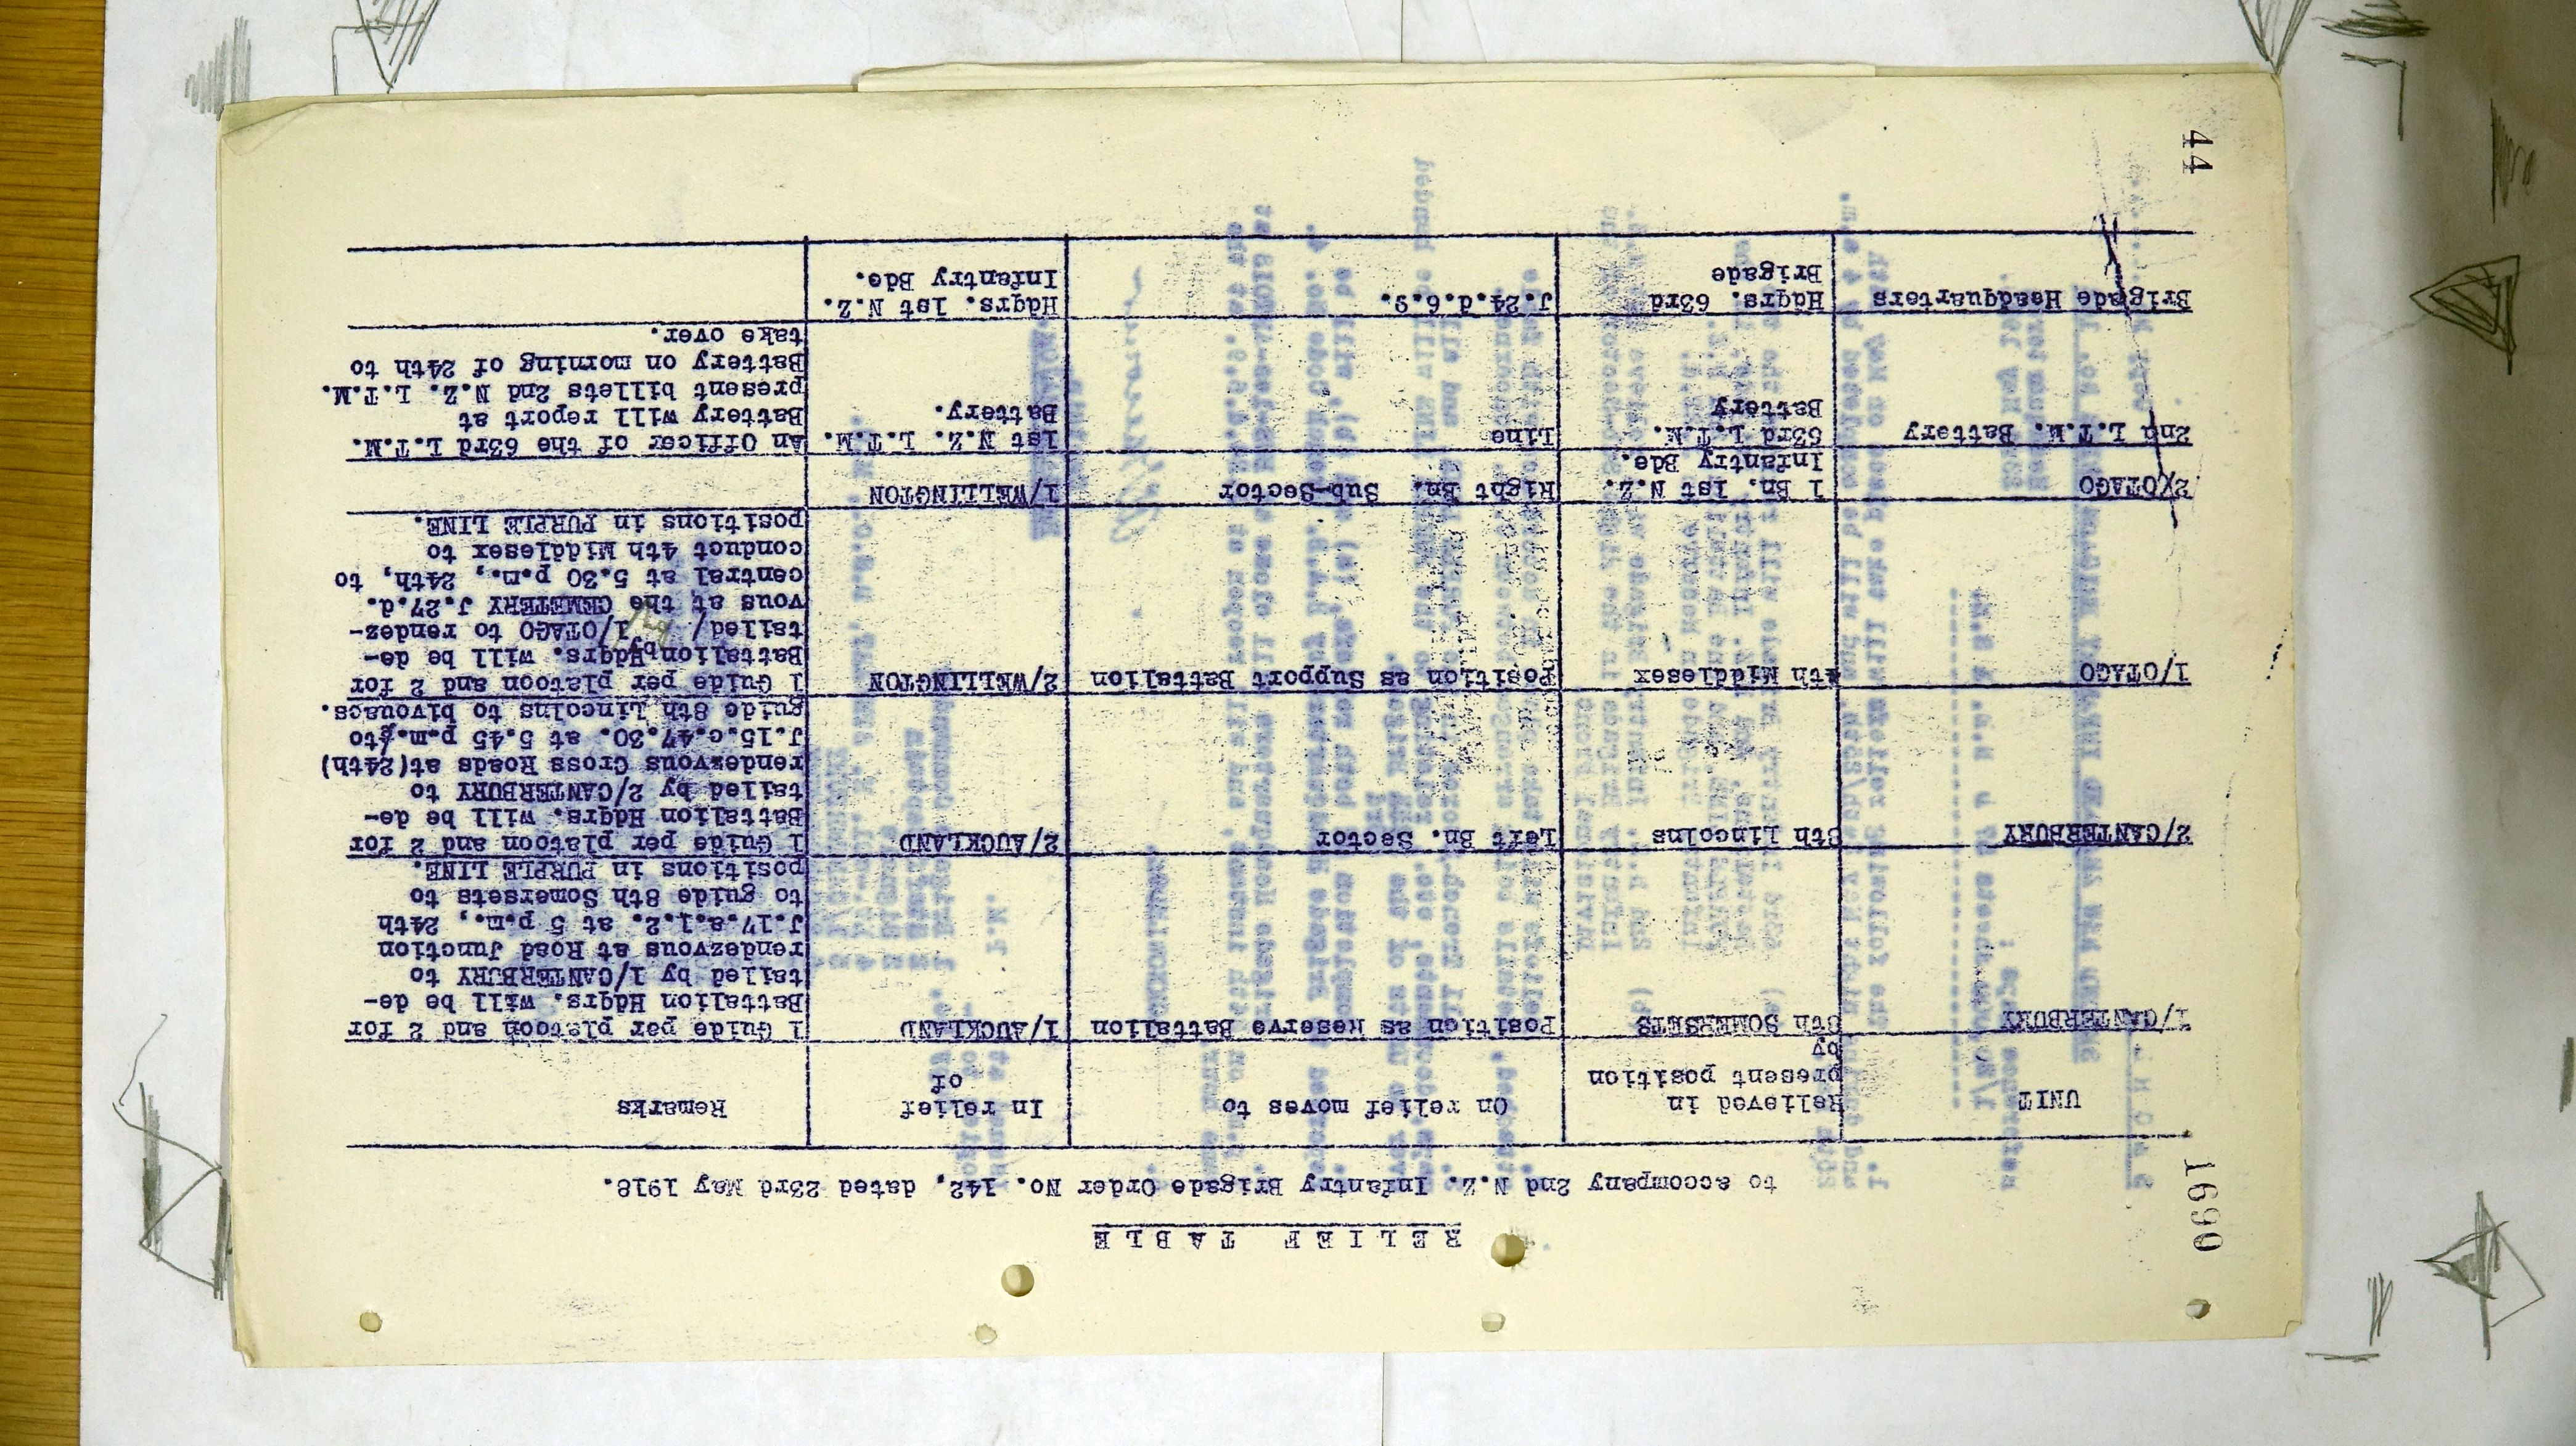 RELIEF TABLE
to accompany 2nd N.Z. Infantry Brigade Order No. 142, dated 23rd May 1918.
UNIT
Relieved in
present position
by
On relief moves to
In relief
of
Remarks
1/CANTERBURY
8th SOMERSETS
Position as Reserve Battalion
1/AUCKLAND
1 Guide per platoon and 2 for
Battalion Hdqrs. will be de-
tailed by 1/CANTERBURY to
rendezvous at Road Junction
J.17.a.1.2. at 5 p.m., 24th
to guide 8th Somersets to
positions in PURPLE LINE.
2/CANTERBURY
8th Lincolns
Left Bn. Sector
2/AUCKLAND
1 Guide per platoon and 2 for
Battalion Hdqrs. will be de-
tailed by 2/CANTERBURY to
rendezvous Cross Roads at(24th)
J.15.c.47.30. at 5.45 p.m./to
guide 8th Lincolns to bivouacs.
1/OTAGO
4th Middlesex
Position as Support Battalion
2/WELLINGTON
1 Guide per platoon and 2 for
Battalion Hdqrs. will be de-
tailed/ by 1/OTAGO to rendez-
vous at the CEMETERY J.27.d.
central at 5.30 p.m., 24th, to
conduct 4th Middlesex to
positions in PURPLE LINE.
2/OTAGO
1 Bn. 1st N.Z.
Infantry Bde.
Right Bn. Sub-Sector
1/WELLINGTON
2nd L.T.M. Battery
63rd L.T.M.
Battery
Line
1st N.Z. L.T.M.
Battery.
An Officer of the 63rd L.T.M.
Battery will report at
present billets 2nd N.Z. L.T.M.
Battery on morning of 24th to
take over.
Brigade Headquarters
Hdqrs. 63rd
Brigade
J.24.d.6.9.
Hdqrs. 1st N.Z.
Infantry Bde.
44
1690